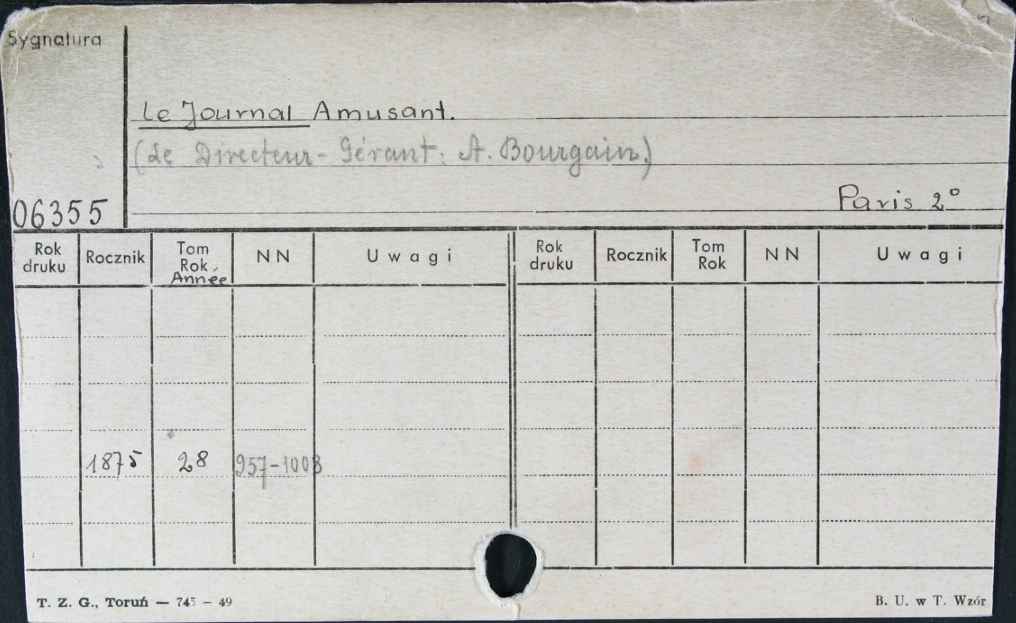 Sygnatura
Le Journal Amusant.
(Le Directeur-Gérant: A. Bourgain)
06355
Paris 2°
Rok druku Rocznik Tom Rok, Année NN Uwagi Rok druku Rocznik Tom Rok NN Uwagi
1875 28 957-1008
T. Z. G., Toruń — 745 - 49 B. U. w T. Wzór